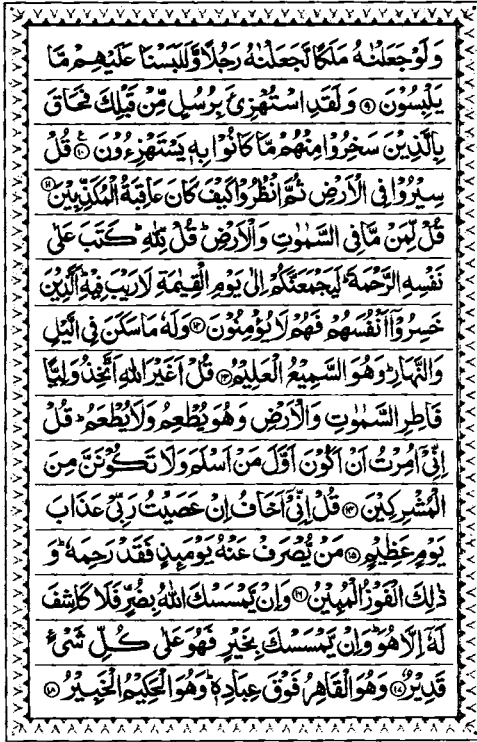 وَلَوْ جَعَلْنٰهُ مَلَكًا لَّجَعَلْنٰهُ رَجُلًا وَّلَلَبَسْنَا عَلَيْهِمْ مَّا
يَلْبِسُوْنَ ۹ وَلَقَدِ اسْتُهْزِئَ بِرُسُلٍ مِّنْ قَبْلِكَ فَحَاقَ
بِالَّذِيْنَ سَخِرُوْا مِنْهُمْ مَّا كَانُوْا بِهٖ يَسْتَهْزِءُوْنَ ۱۰ قُلْ
سِيْرُوْا فِى الْاَرْضِ ثُمَّ انْظُرُوْا كَيْفَ كَانَ عَاقِبَةُ الْمُكَذِّبِيْنَ ۱۱
قُلْ لِّمَنْ مَّا فِى السَّمٰوٰتِ وَالْاَرْضِ ؕ قُلْ لِّلّٰهِ ؕ كَتَبَ عَلٰى
نَفْسِهِ الرَّحْمَةَ ؕ لَيَجْمَعَنَّكُمْ اِلٰى يَوْمِ الْقِيٰمَةِ لَا رَيْبَ فِيْهِ ؕ اَلَّذِيْنَ
خَسِرُوْۤا اَنْفُسَهُمْ فَهُمْ لَا يُؤْمِنُوْنَ ۱۲ وَلَهٗ مَا سَكَنَ فِى الَّيْلِ
وَالنَّهَارِ ؕ وَهُوَ السَّمِيْعُ الْعَلِيْمُ ۱۳ قُلْ اَغَيْرَ اللّٰهِ اَتَّخِذُ وَلِيًّا
فَاطِرِ السَّمٰوٰتِ وَالْاَرْضِ وَهُوَ يُطْعِمُ وَلَا يُطْعَمُ ؕ قُلْ
اِنِّىْۤ اُمِرْتُ اَنْ اَكُوْنَ اَوَّلَ مَنْ اَسْلَمَ وَلَا تَكُوْنَنَّ مِنَ
الْمُشْرِكِيْنَ ۱۴ قُلْ اِنِّىْۤ اَخَافُ اِنْ عَصَيْتُ رَبِّىْ عَذَابَ
يَوْمٍ عَظِيْمٍ ۱۵ مَنْ يُّصْرَفْ عَنْهُ يَوْمَئِذٍ فَقَدْ رَحِمَهٗ ؕ وَ
ذٰلِكَ الْفَوْزُ الْمُبِيْنُ ۱۶ وَاِنْ يَّمْسَسْكَ اللّٰهُ بِضُرٍّ فَلَا كَاشِفَ
لَهٗۤ اِلَّا هُوَ ؕ وَاِنْ يَّمْسَسْكَ بِخَيْرٍ فَهُوَ عَلٰى كُلِّ شَىْءٍ
قَدِيْرٌ ۱۷ وَهُوَ الْقَاهِرُ فَوْقَ عِبَادِهٖ ؕ وَهُوَ الْحَكِيْمُ الْخَبِيْرُ ۱۸